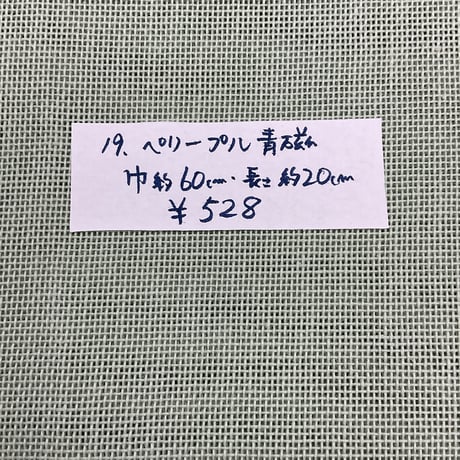 19. ペリープル 青磁
巾約60cm・長さ約20cm
¥528